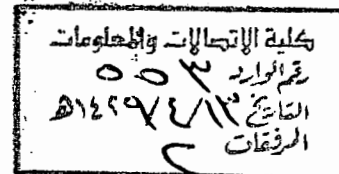 كلية الاتصالات والمعلومات
رقم الوارد ٥٥٣
التاريخ ١٤٢٩/٤/١٣هـ
المرفقات ٢